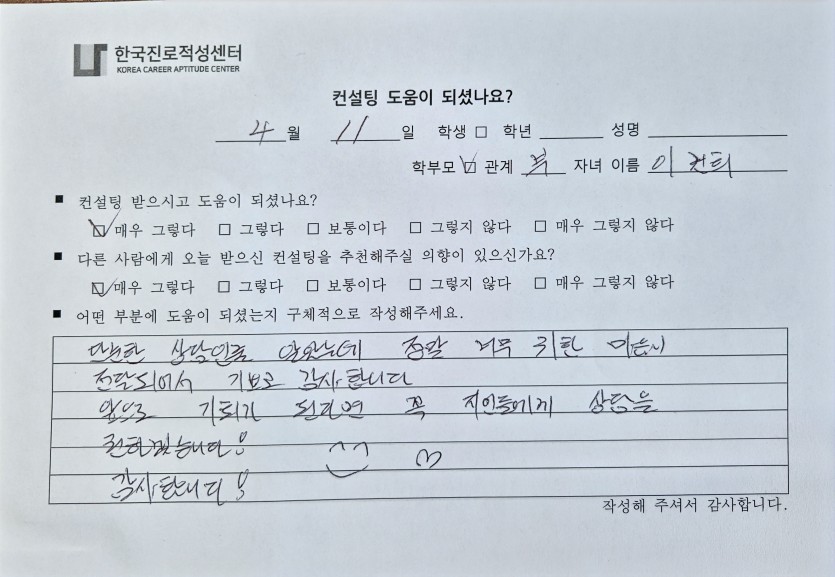 한국진로적성센터
KOREA CAREER APTITUDE CENTER
컨설팅 도움이 되셨나요?
4 월 11 일 학생 □ 학년 성명
학부모 ☑ 관계 부 자녀 이름 이
■ 컨설팅 받으시고 도움이 되셨나요?
☑ 매우 그렇다 □ 그렇다 □ 보통이다 □ 그렇지 않다 □ 매우 그렇지 않다
■ 다른 사람에게 오늘 받으신 컨설팅을 추천해주실 의향이 있으신가요?
☑ 매우 그렇다 □ 그렇다 □ 보통이다 □ 그렇지 않다 □ 매우 그렇지 않다
■ 어떤 부분에 도움이 되셨는지 구체적으로 작성해주세요.
단순한 상담인줄 알았는데 정말 너무 귀한 마음이
전달되어서 감사합니다
앞으로 기회가 된다면 꼭 지인들에게 상담을
전하겠습니다!
감사합니다!
작성해 주셔서 감사합니다.